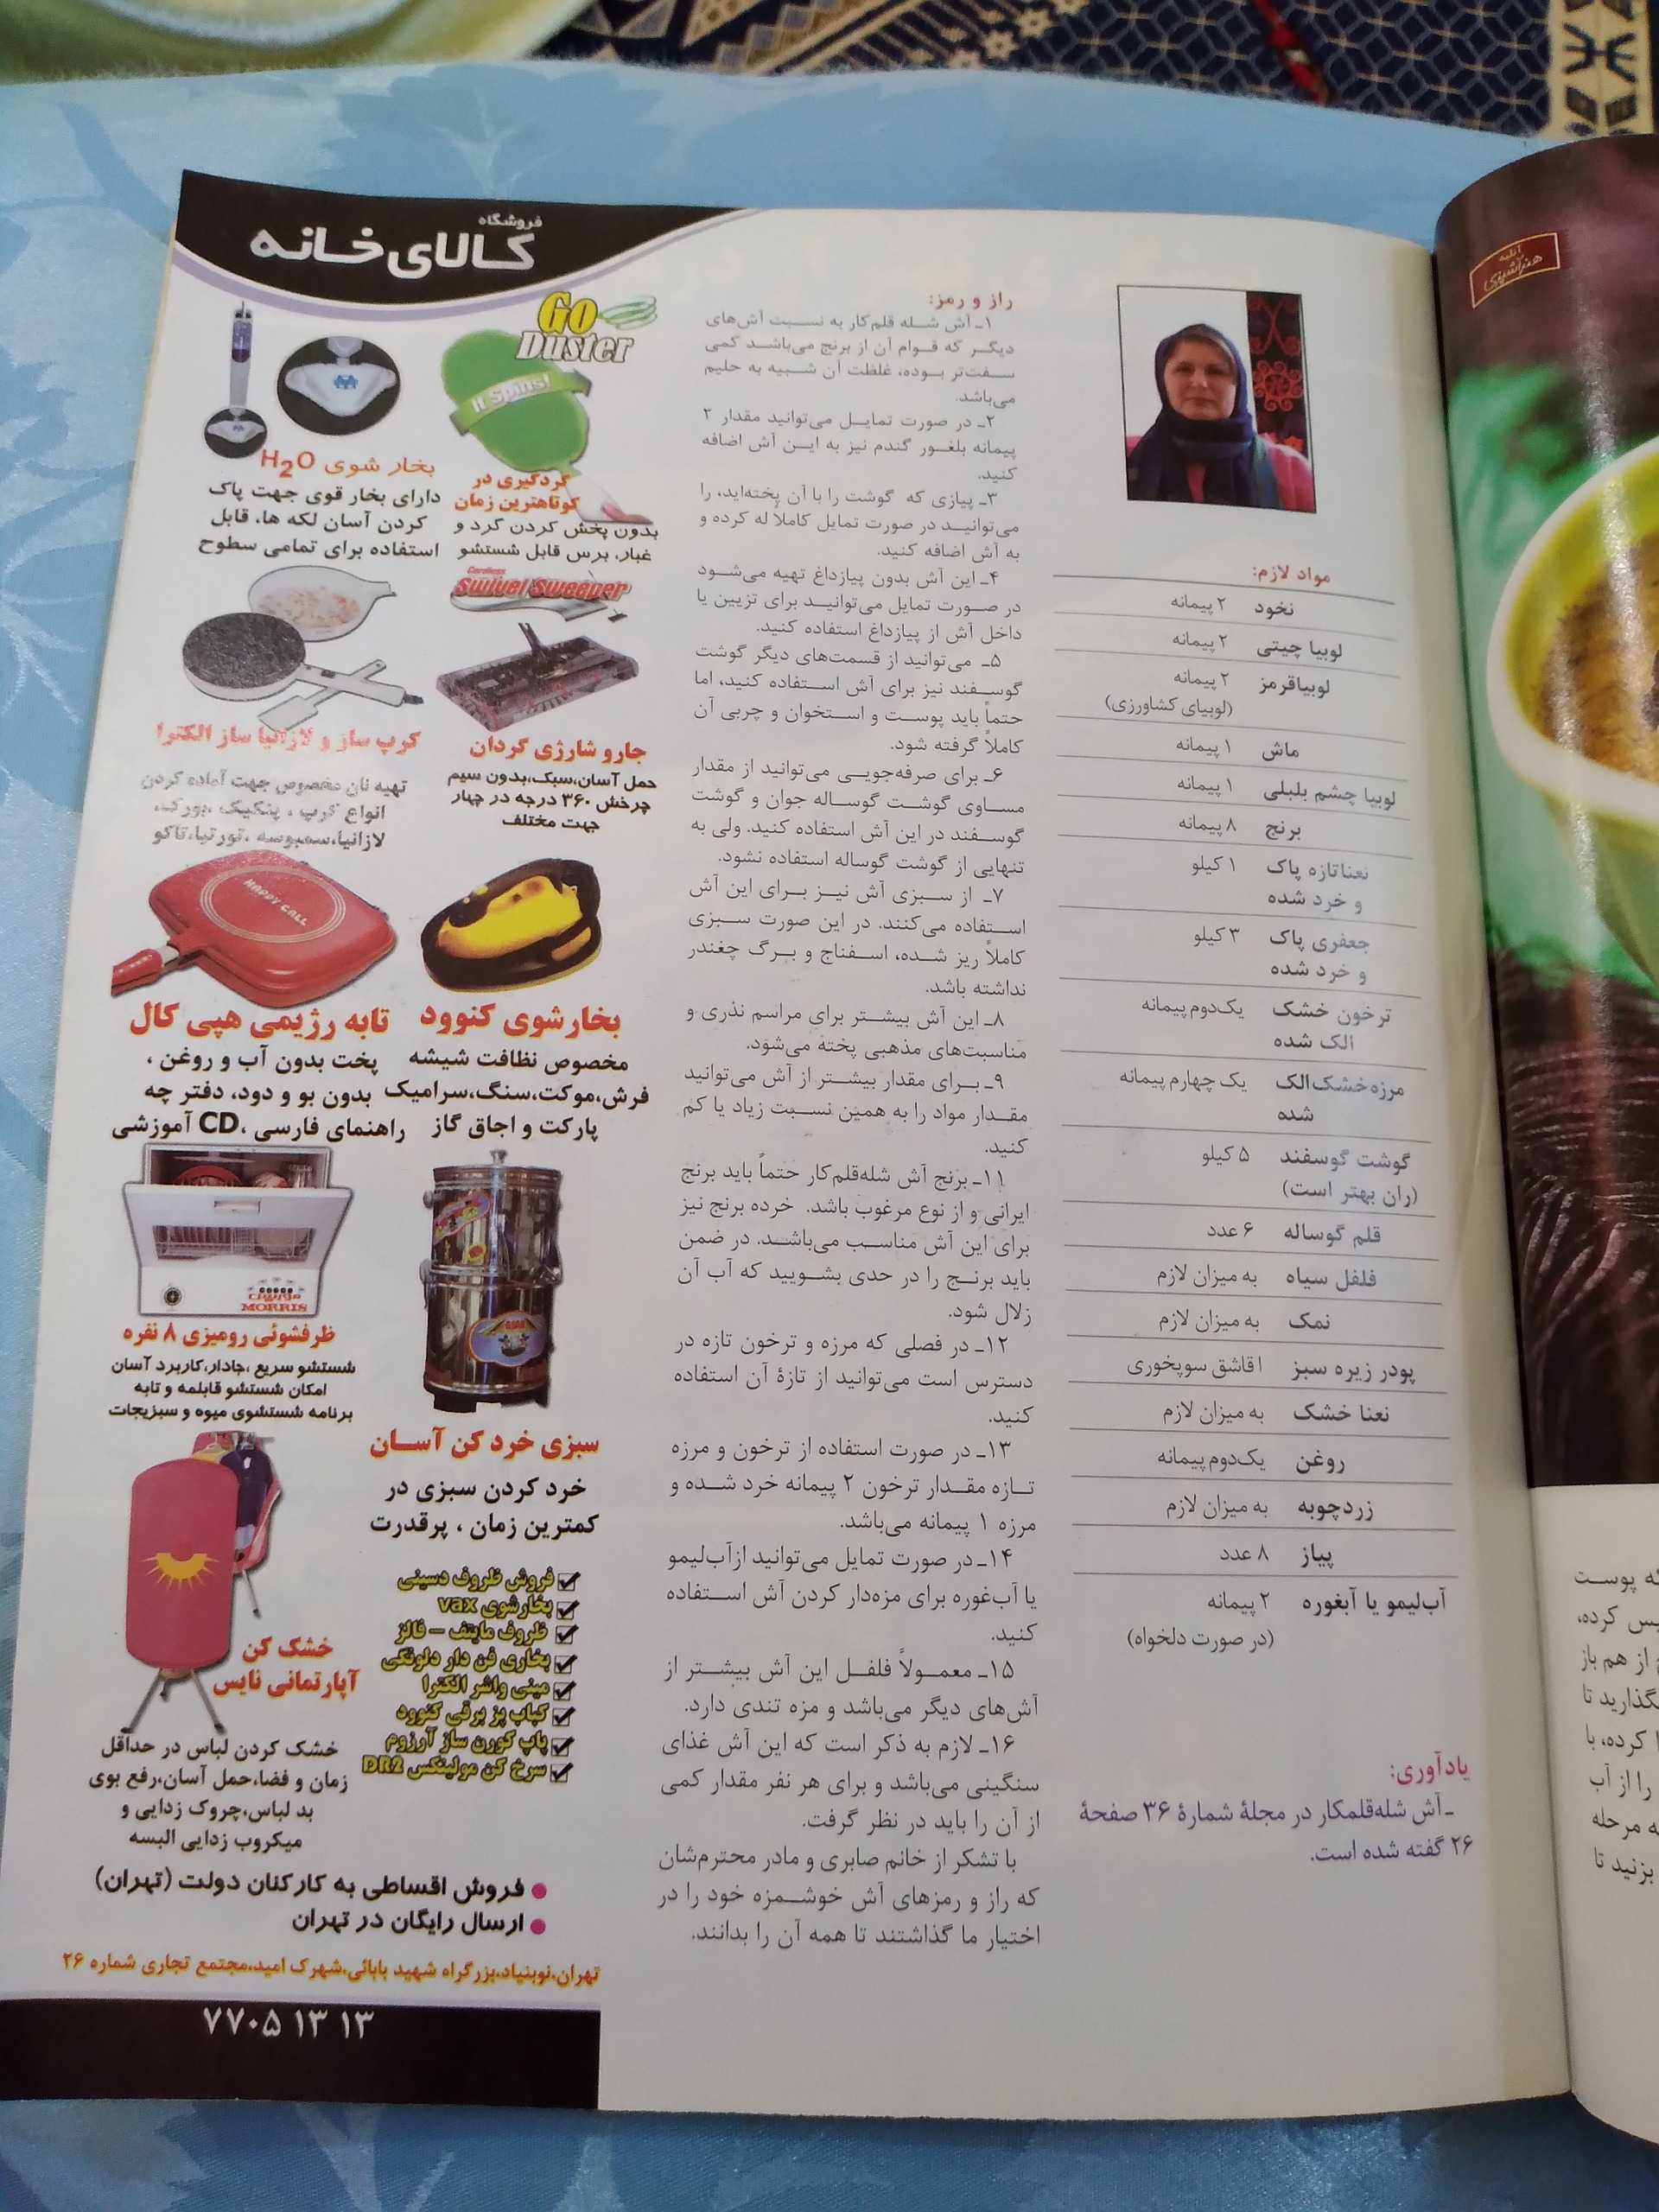 آتلیه
هنر آشپزی
مواد لازم:
نخود ۲ پیمانه
لوبیا چیتی ۲ پیمانه
لوبیاقرمز ۲ پیمانه
(لوبیای کشاورزی)
ماش ۱ پیمانه
لوبیا چشم بلبلی ۱ پیمانه
برنج ۸ پیمانه
نعناتازه پاک ۱ کیلو
و خرد شده
جعفری پاک ۳ کیلو
و خرد شده
ترخون خشک یک‌دوم پیمانه
الک شده
مرزه‌خشک‌الک یک چهارم پیمانه
شده
گوشت گوسفند ۵ کیلو
(ران بهتر است)
قلم گوساله ۶ عدد
فلفل سیاه به میزان لازم
نمک به میزان لازم
پودر زیره سبز ۱قاشق سوپخوری
نعنا خشک به میزان لازم
روغن یک‌دوم پیمانه
زردچوبه به میزان لازم
پیاز ۸ عدد
آب‌لیمو یا آبغوره ۲ پیمانه
(در صورت دلخواه)
یادآوری:
ـ آش شله‌قلمکار در مجلهٔ شمارهٔ ۳۶ صفحهٔ
۲۶ گفته شده است.
راز و رمز:
۱ـ آش شله قلم‌کار به نسبت آش‌های
دیگر که قوام آن از برنج می‌باشد کمی
سفت‌تر بوده، غلظت آن شبیه به حلیم
می‌باشد.
۲ـ در صورت تمایل می‌توانید مقدار ۲
پیمانه بلغور گندم نیز به این آش اضافه
کنید.
۳ـ پیازی که گوشت را با آن پخته‌اید، را
می‌توانید در صورت تمایل کاملاً له کرده و
به آش اضافه کنید.
۴ـ این آش بدون پیازداغ تهیه می‌شود
در صورت تمایل می‌توانید برای تزیین یا
داخل آش از پیازداغ استفاده کنید.
۵ـ می‌توانید از قسمت‌های دیگر گوشت
گوسفند نیز برای آش استفاده کنید، اما
حتماً باید پوست و استخوان و چربی آن
کاملاً گرفته شود.
۶ـ برای صرفه‌جویی می‌توانید از مقدار
مساوی گوشت گوساله جوان و گوشت
گوسفند در این آش استفاده کنید. ولی به
تنهایی از گوشت گوساله استفاده نشود.
۷ـ از سبزی آش نیز برای این آش
استفاده می‌کنند. در این صورت سبزی
کاملاً ریز شده، اسفناج و برگ چغندر
نداشته باشد.
۸ـ این آش بیشتر برای مراسم نذری و
مناسبت‌های مذهبی پخته می‌شود.
۹ـ برای مقدار بیشتر از آش می‌توانید
مقدار مواد را به همین نسبت زیاد یا کم
کنید.
۱۱ـ برنج آش شله‌قلم‌کار حتماً باید برنج
ایرانی و از نوع مرغوب باشد. خرده برنج نیز
برای این آش مناسب می‌باشد. در ضمن
باید برنج را در حدی بشویید که آب آن
زلال شود.
۱۲ـ در فصلی که مرزه و ترخون تازه در
دسترس است می‌توانید از تازهٔ آن استفاده
کنید.
۱۳ـ در صورت استفاده از ترخون و مرزه
تازه مقدار ترخون ۲ پیمانه خرد شده و
مرزه ۱ پیمانه می‌باشد.
۱۴ـ در صورت تمایل می‌توانید ازآب‌لیمو
یا آب‌غوره برای مزه‌دار کردن آش استفاده
کنید.
۱۵ـ معمولاً فلفل این آش بیشتر از
آش‌های دیگر می‌باشد و مزه تندی دارد.
۱۶ـ لازم به ذکر است که این آش غذای
سنگینی می‌باشد و برای هر نفر مقدار کمی
از آن را باید در نظر گرفت.
با تشکر از خانم صابری و مادر محترم‌شان
که راز و رمزهای آش خوشمزه خود را در
اختیار ما گذاشتند تا همه آن را بدانند.
فروشگاه
کالای خانه
Go
Duster
It Spins!
گردگیری در
کوتاهترین زمان
بدون پخش کردن گرد و
غبار، برس قابل شستشو
بخار شوی H2O
دارای بخار قوی جهت پاک
کردن آسان لکه ها، قابل
استفاده برای تمامی سطوح
Cordless
Swivel Sweeper
جارو شارژی گردان
حمل آسان،سبک،بدون سیم
چرخش ۳۶۰ درجه در چهار
جهت مختلف
کرپ ساز و لازانیا ساز الکترا
تهیه نان مخصوص جهت آماده کردن
انواع کرپ ، پنکیک ،بورک،
لازانیا،سمبوسه ،تورتیا،تاکو
بخارشوی کنوود
مخصوص نظافت شیشه
فرش،موکت،سنگ،سرامیک
پارکت و اجاق گاز
HAPPY CALL
تابه رژیمی هپی کال
پخت بدون آب و روغن ،
بدون بو و دود، دفتر چه
راهنمای فارسی ،CD آموزشی
سبزی خرد کن آسان
خرد کردن سبزی در
کمترین زمان ، پرقدرت
MORRIS
ظرفشوئی رومیزی ۸ نفره
شستشو سریع ،جادار،کاربرد آسان
امکان شستشو قابلمه و تابه
برنامه شستشوی میوه و سبزیجات
فروش ظروف دسینی
بخارشوی vax
ظروف مایتف – فالز
بخاری فن دار دلونگی
مینی واشر الکترا
کباب پز برقی کنوود
پاپ کورن ساز آرزوم
سرخ کن مولینکس DR2
خشک کن
آپارتمانی نایس
خشک کردن لباس در حداقل
زمان و فضا،حمل آسان،رفع بوی
بد لباس،چروک زدایی و
میکروب زدایی البسه
● فروش اقساطی به کارکنان دولت (تهران)
● ارسال رایگان در تهران
تهران،نوبنیاد،بزرگراه شهید بابائی،شهرک امید،مجتمع تجاری شماره ۲۶
۷۷۰۵ ۱۳ ۱۳
که پوست
از هم باز
بگذارید تا
کرده، با
را از آب
مرحله
بزنید تا